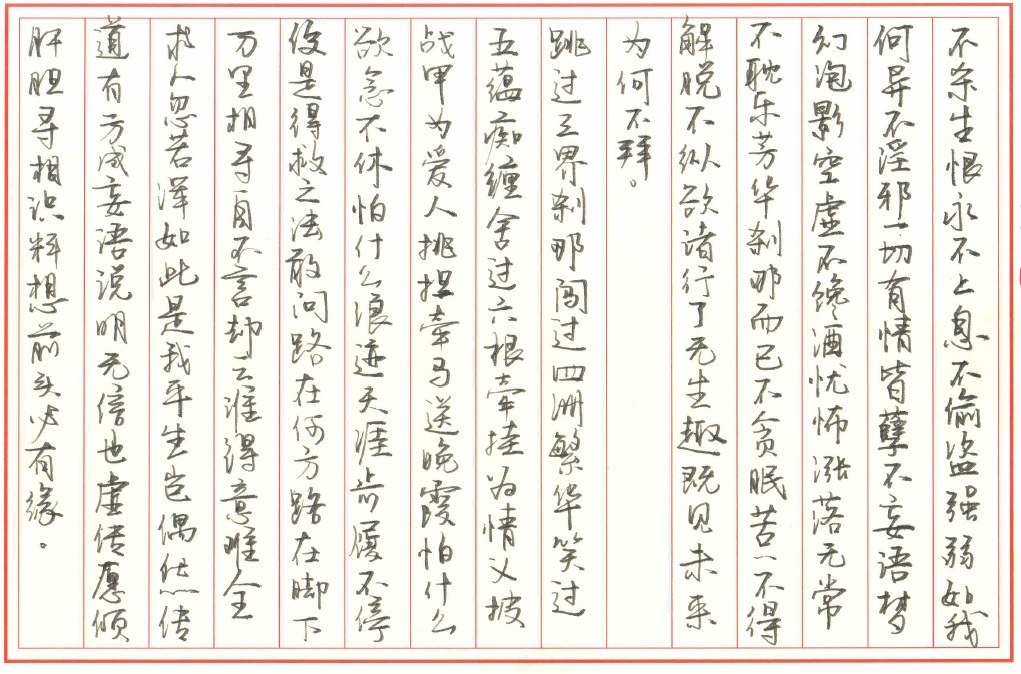 不杀生恨永不止息不偷盗强弱如我
何异不淫邪一切有情皆孽不妄语梦
幻泡影空虚不馋酒忧怖涨落无常
不耽乐芳华刹那而已不贪眠苦〻不得
解脱不纵欲诸行了无生趣既见未来
为何不拜。
跳过三界刹那闯过四洲繁华笑过
五蕴痴缠舍过六根牵挂为情义披
战甲为爱人挑担牵马送晚霞怕什么
欲念不休怕什么浪迹天涯步履不停
便是得救之法敢问路在何方路在脚下
万里相寻自不言却云谁得意难全
求人忽若浑如此是我平生岂偶然传
道有方成妄语说明无信也虚传愿倾
肝胆寻相识料想前头必有缘。